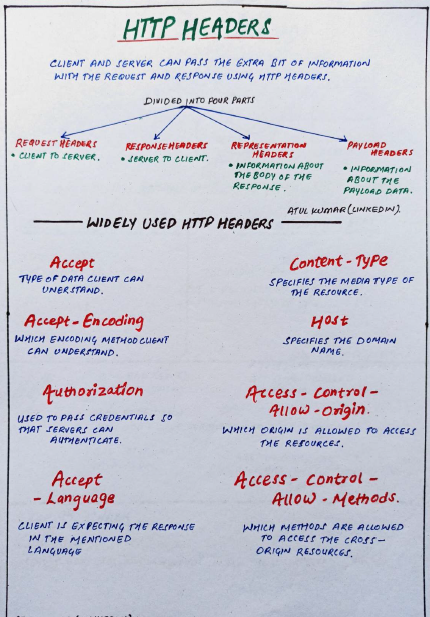 HTTP HEADERS
CLIENT AND SERVER CAN PASS THE EXTRA BIT OF INFORMATION
WITH THE REQUEST AND RESPONSE USING HTTP HEADERS.
DIVIDED INTO FOUR PARTS
REQUEST HEADERS
• CLIENT TO SERVER.
RESPONSE HEADERS
• SERVER TO CLIENT.
REPRESENTATION
HEADERS
• INFORMATION ABOUT
THE BODY OF THE
RESPONSE.
PAYLOAD
HEADERS
• INFORMATION
ABOUT THE
PAYLOAD DATA.
ATUL KUMAR (LINKEDIN).
WIDELY USED HTTP HEADERS
Accept
TYPE OF DATA CLIENT CAN
UNERSTAND.
Content-Type
SPECIFIES THE MEDIA TYPE OF
THE RESOURCE.
Accept-Encoding
WHICH ENCODING METHOD CLIENT
CAN UNDERSTAND.
Host
SPECIFIES THE DOMAIN
NAME.
Authorization
USED TO PASS CREDENTIALS SO
THAT SERVERS CAN
AUTHENTICATE.
Access-Control-
Allow-Origin.
WHICH ORIGIN IS ALLOWED TO ACCESS
THE RESOURCES.
Accept
-Language
CLIENT IS EXPECTING THE RESPONSE
IN THE MENTIONED
LANGUAGE
Access-Control-
Allow-Methods.
WHICH METHODS ARE ALLOWED
TO ACCESS THE CROSS-
ORIGIN RESOURCES.